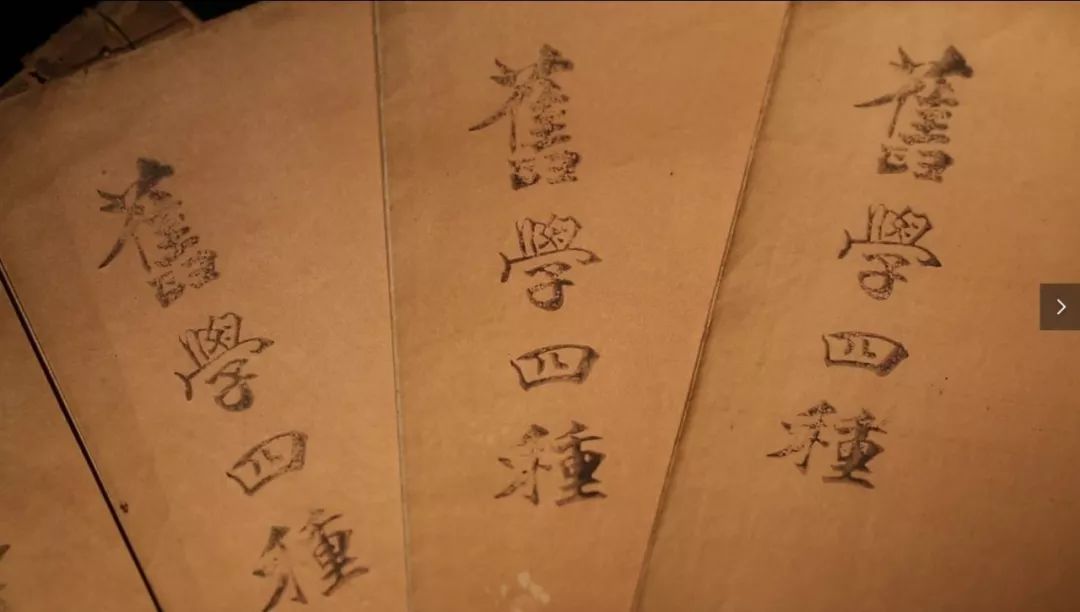 舊學四種
舊學四種
舊學四種